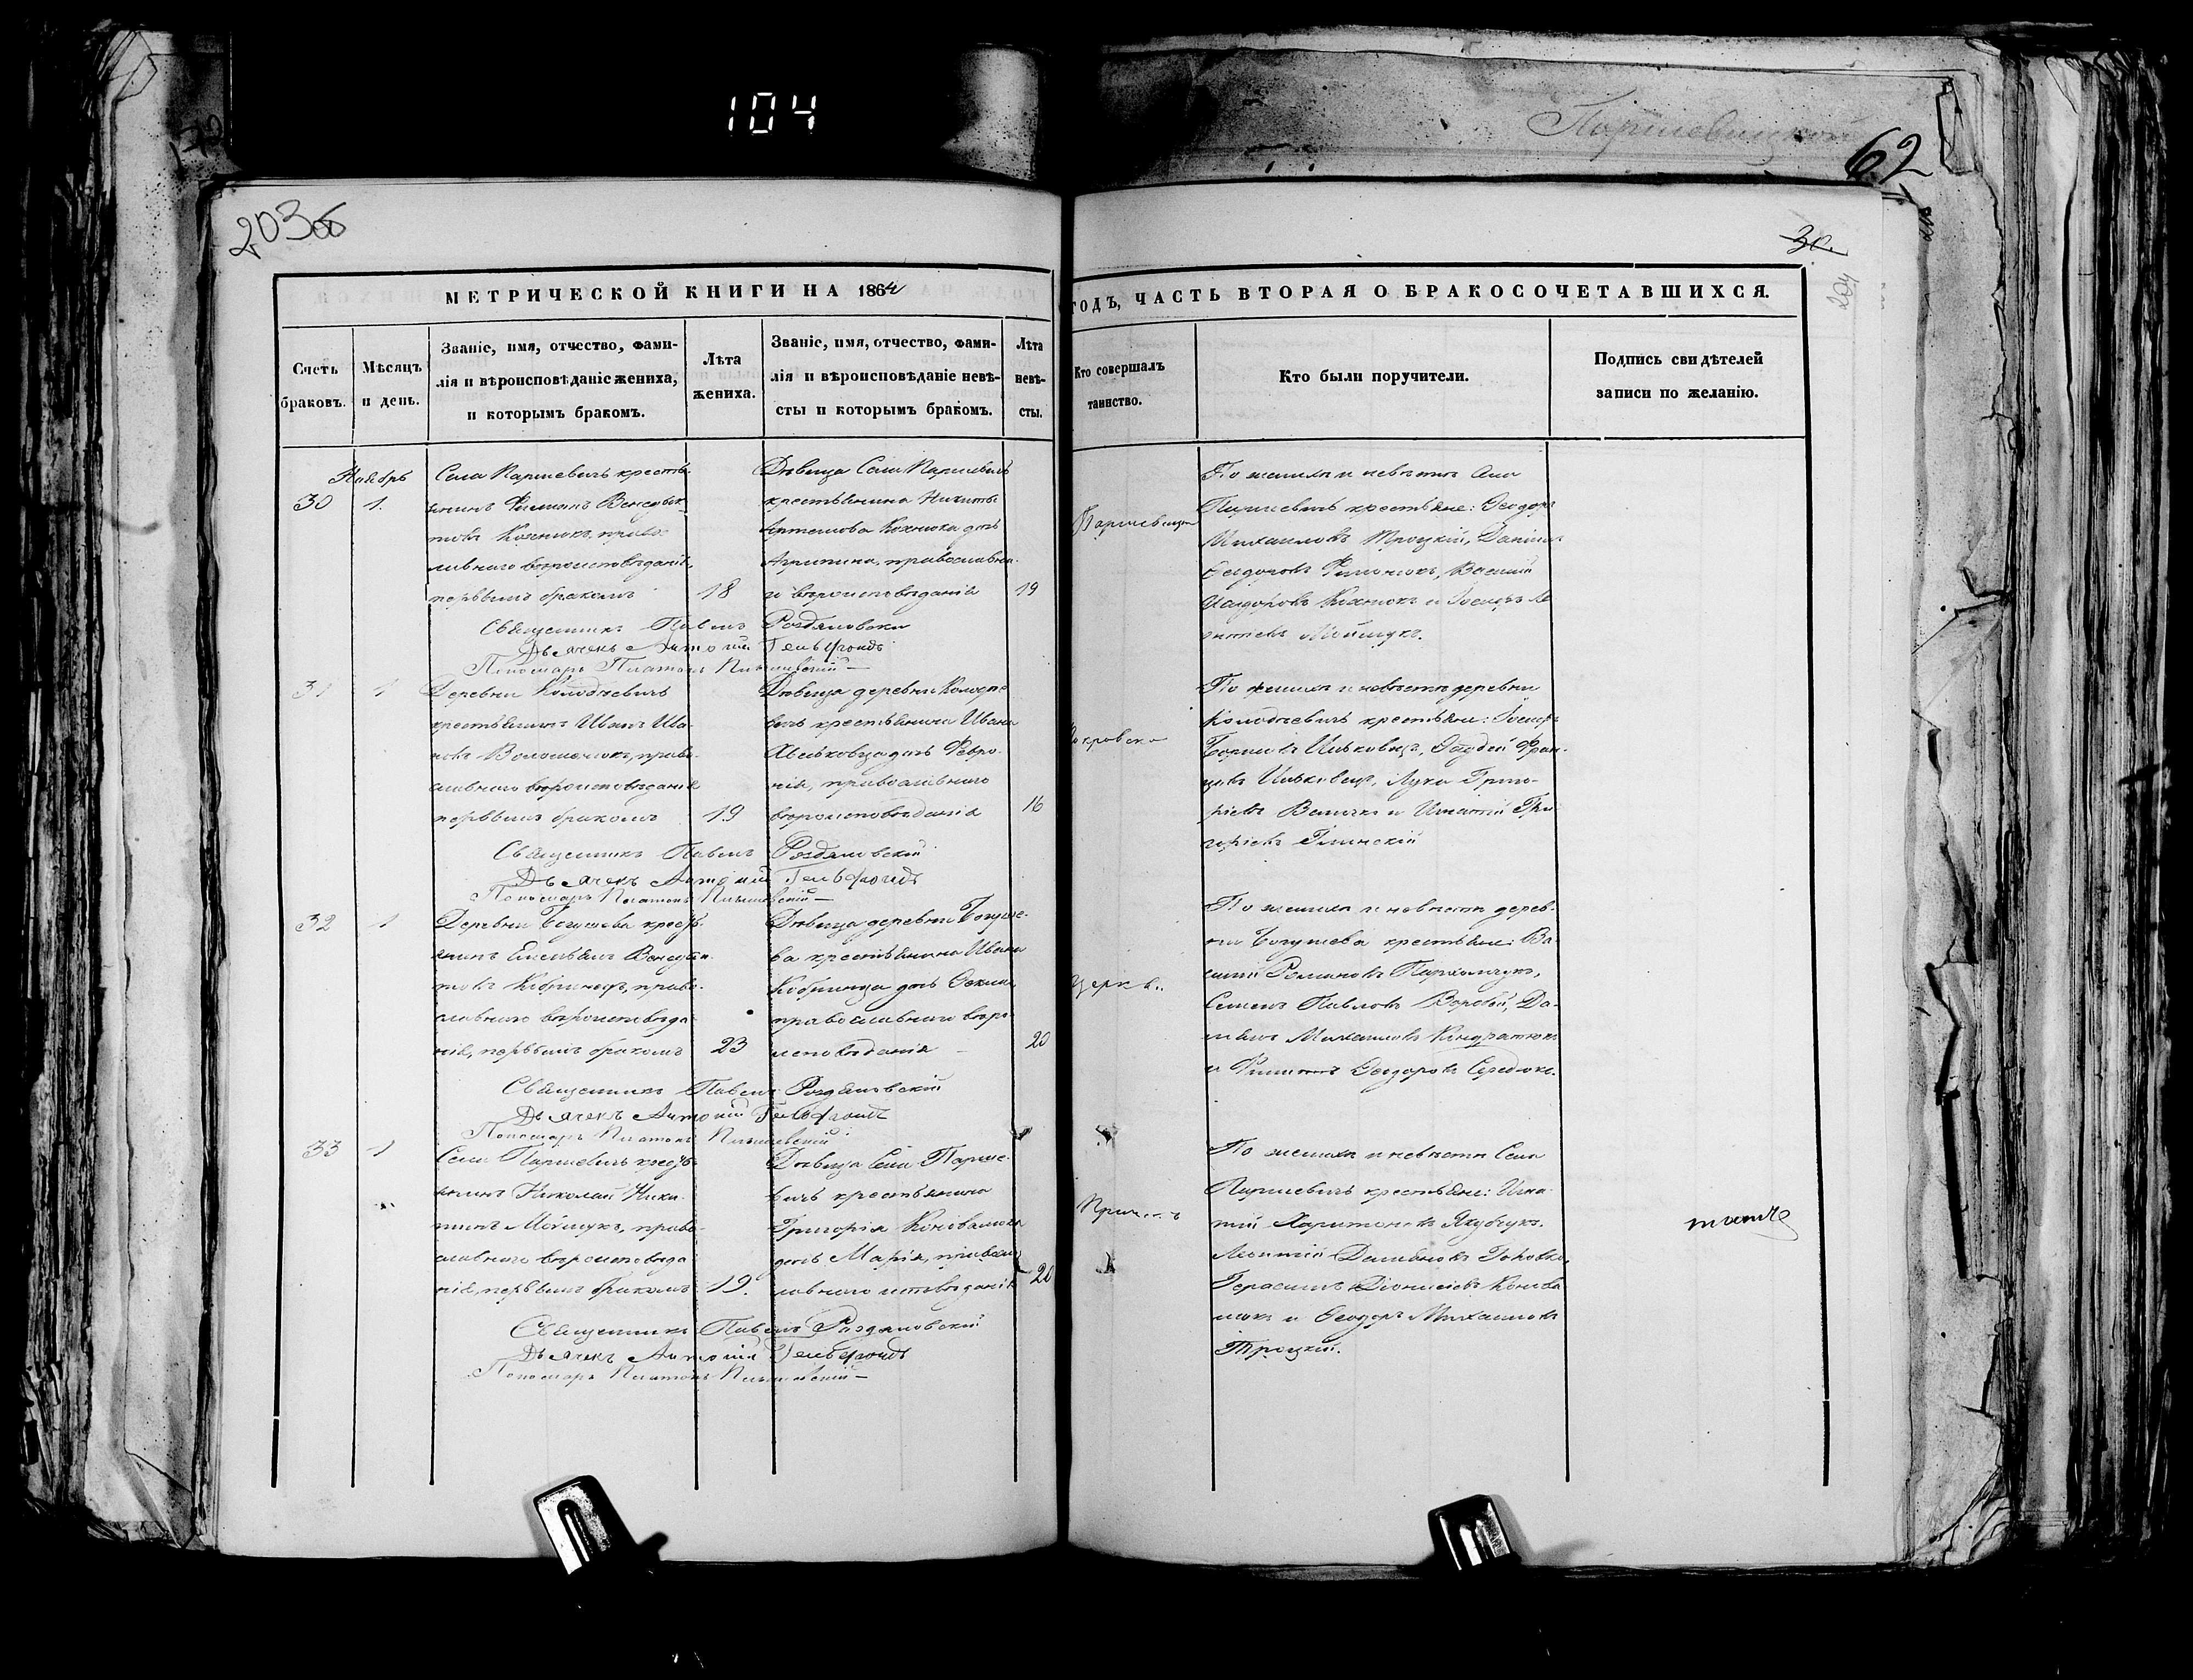 104
Паршевицкой
62
203об
30.
204
МЕТРИЧЕСКОЙ КНИГИ НА 1864
ГОДЪ, ЧАСТЬ ВТОРАЯ О БРАКОСОЧЕТАВШИХСЯ.
Счетъ браковъ.
Мѣсяцъ и день.
Званіе, имя, отчество, фами-
лія и вѣроисповѣданіе жениха,
и которымъ бракомъ.
Лѣта жениха.
Званіе, имя, отчество, фами-
лія и вѣроисповѣданіе невѣ-
сты и которымъ бракомъ.
Лѣта невѣ-
сты.
Кто совершалъ
таинство.
Кто были поручители.
Подпись свидѣтелей
записи по желанію.
Ноябрь
30
1.
Села Паршевичъ кресть-
янинъ Филимонъ Венедик
товъ Кохнюкъ, право-
славнаго вѣроисповѣданія,
первымъ бракомъ
18
Дѣвица Села Паршевичъ
крестьянина Никиты
Артемова Кохнюка дочь
Агрипина, православна-
го вѣроисповѣданія
19
Паршевицкой
По женихѣ и невѣстѣ Села
Паршевичъ крестьяне: Ѳеодоръ
Михаиловъ Троцкій, Даніилъ
Ѳеодоровъ Филонюкъ, Василій
Исидоровъ Кохнюкъ и Іосифъ Ле
онтіевъ Мойсіукъ.
Священникъ Павелъ Роздяловскій
Дьячекъ Антоній
Пономарь Платонъ
31
1
Деревни Колоднѣвичъ
крестьянинъ Иванъ Ива-
новъ Волошенюкъ, право-
славнаго вѣроисповѣданія
первымъ бракомъ
19
Дѣвица деревни Колодне
вичъ крестьянина Ивана
дочь Февро-
нія, православнаго
вѣроисповѣданія
16
Покровско
По женихѣ и невѣстѣ деревни
Колоднѣвичъ крестьяне: Іосифъ
Ильковецъ, Ѳаддей Фран-
цовъ Ильковецъ, Лука Григо-
ріевъ и Игнатій Гри
горіевъ Глинскій
Священникъ Павелъ Роздяловскій
Дьячекъ Антоній
Пономарь Платонъ
32
1
Деревни Богушева кресть-
янинъ Емельянъ Венедик
товъ Кобринецъ, право-
славнаго вѣроисповѣда-
нія, первымъ бракомъ
23
Дѣвица деревни Богуше-
ва крестьянина Ивана
Кобринца дочь
православнаго вѣро-
исповѣданія
20
Церкв.
По женихѣ и невѣстѣ дерев-
ни Богушева крестьяне: Ва-
силій Романовъ Пархомчукъ,
Семенъ Павловъ Воробей, Да-
ніилъ Михаиловъ Кондратюкъ
и Филиппъ Ѳеодоровъ Середюкъ.
Священникъ Павелъ Роздяловскій
Дьячекъ Антоній
Пономарь Платонъ
33
1
Села Паршевичъ кресть-
янинъ Николай Ники-
тинъ Мойсіукъ, право-
славнаго вѣроисповѣда
нія, первымъ бракомъ
19.
Дѣвица Села Парше-
вичъ крестьянина
Григорія Коновалюка
дочь Марія, правос
лавнаго исповѣданія
20
Причетъ
По женихѣ и невѣстѣ Села
Паршевичъ крестьяне: Игна
тій Харитоновъ Якубчукъ,
Леонтій Даміановъ
Герасимъ Діонисіевъ Конова
люкъ и Ѳеодоръ Михаиловъ
Троцкій.
Священникъ Павелъ Роздяловскій
Дьячекъ Антоній
Пономарь Платонъ